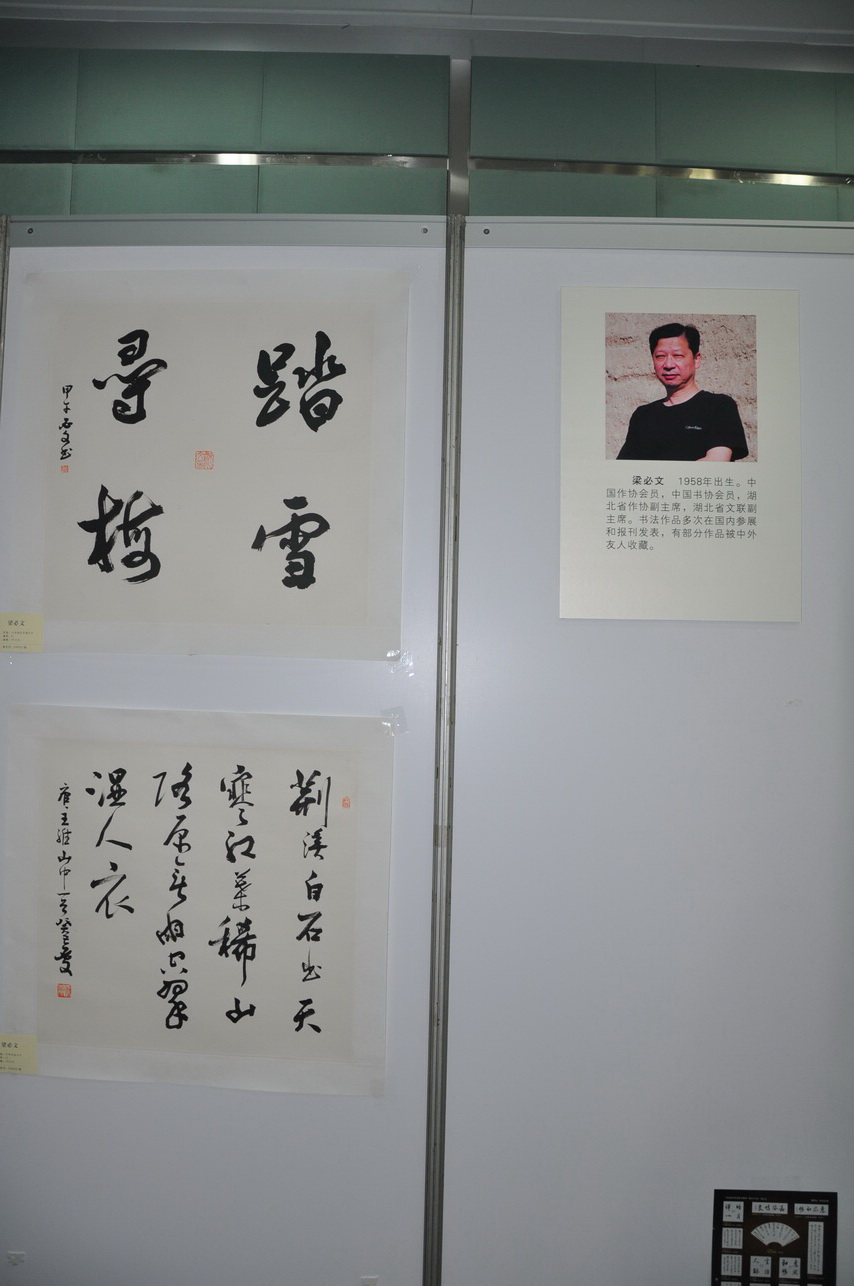 踏雪
尋梅
甲午必文书
荆溪白石出天
寒红葉稀山
路原无雨空翠
湿人衣
唐王維山中一首癸巳夏
梁必文
梁必文
梁必文 1958年出生。中
国作协会员，中国书协会员，湖
北省作协副主席，湖北省文联副
主席。书法作品多次在国内参展
和报刊发表，有部分作品被中外
友人收藏。